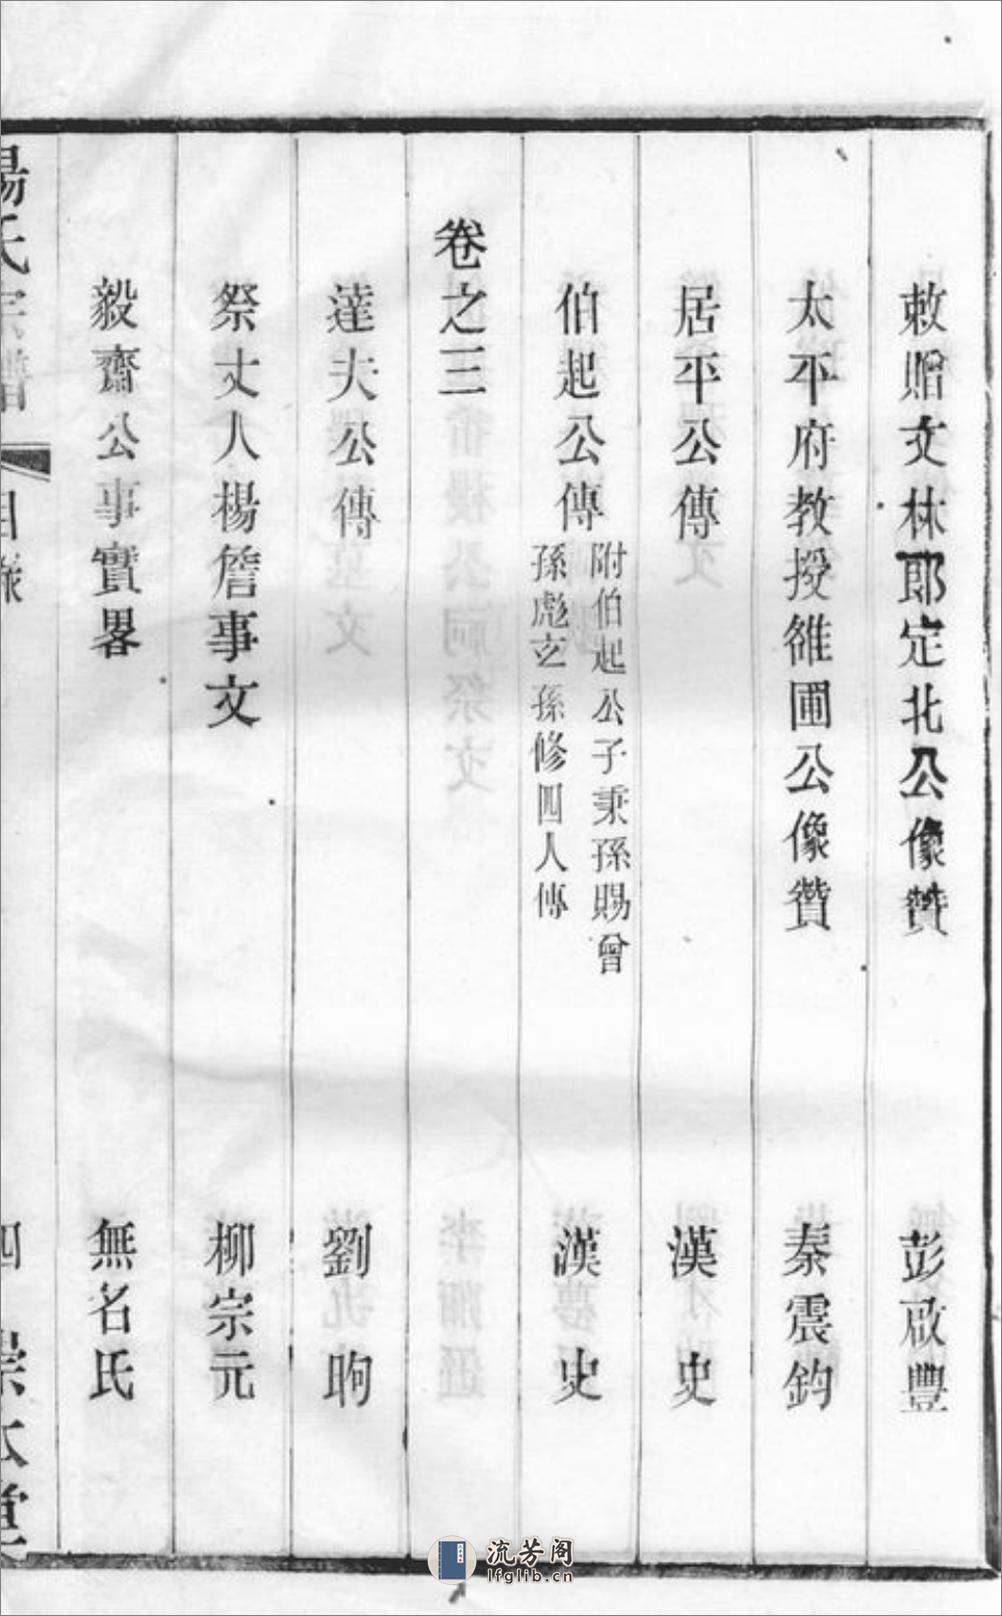 敕贈文林郎定北公像贊 彭啟豐
太平府教授雒圃公像贊 秦震鈞
居平公傳 漢史
伯起公傳 附伯起公子秉孫賜曾
孫彪玄孫修四人傳 漢史
卷之三
達夫公傳 劉昫
祭丈人楊詹事文 柳宗元
毅齋公事實畧 無名氏
楊氏宗譜 目錄 四 崇本堂
流芳阁
lfglib.cn